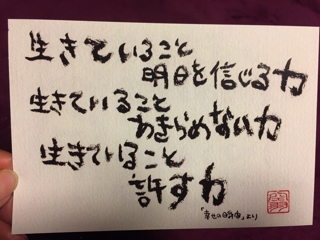 生きていること
明日を信じる力
生きていること
あきらめない力
生きていること
許す力
「幸せの時由」より